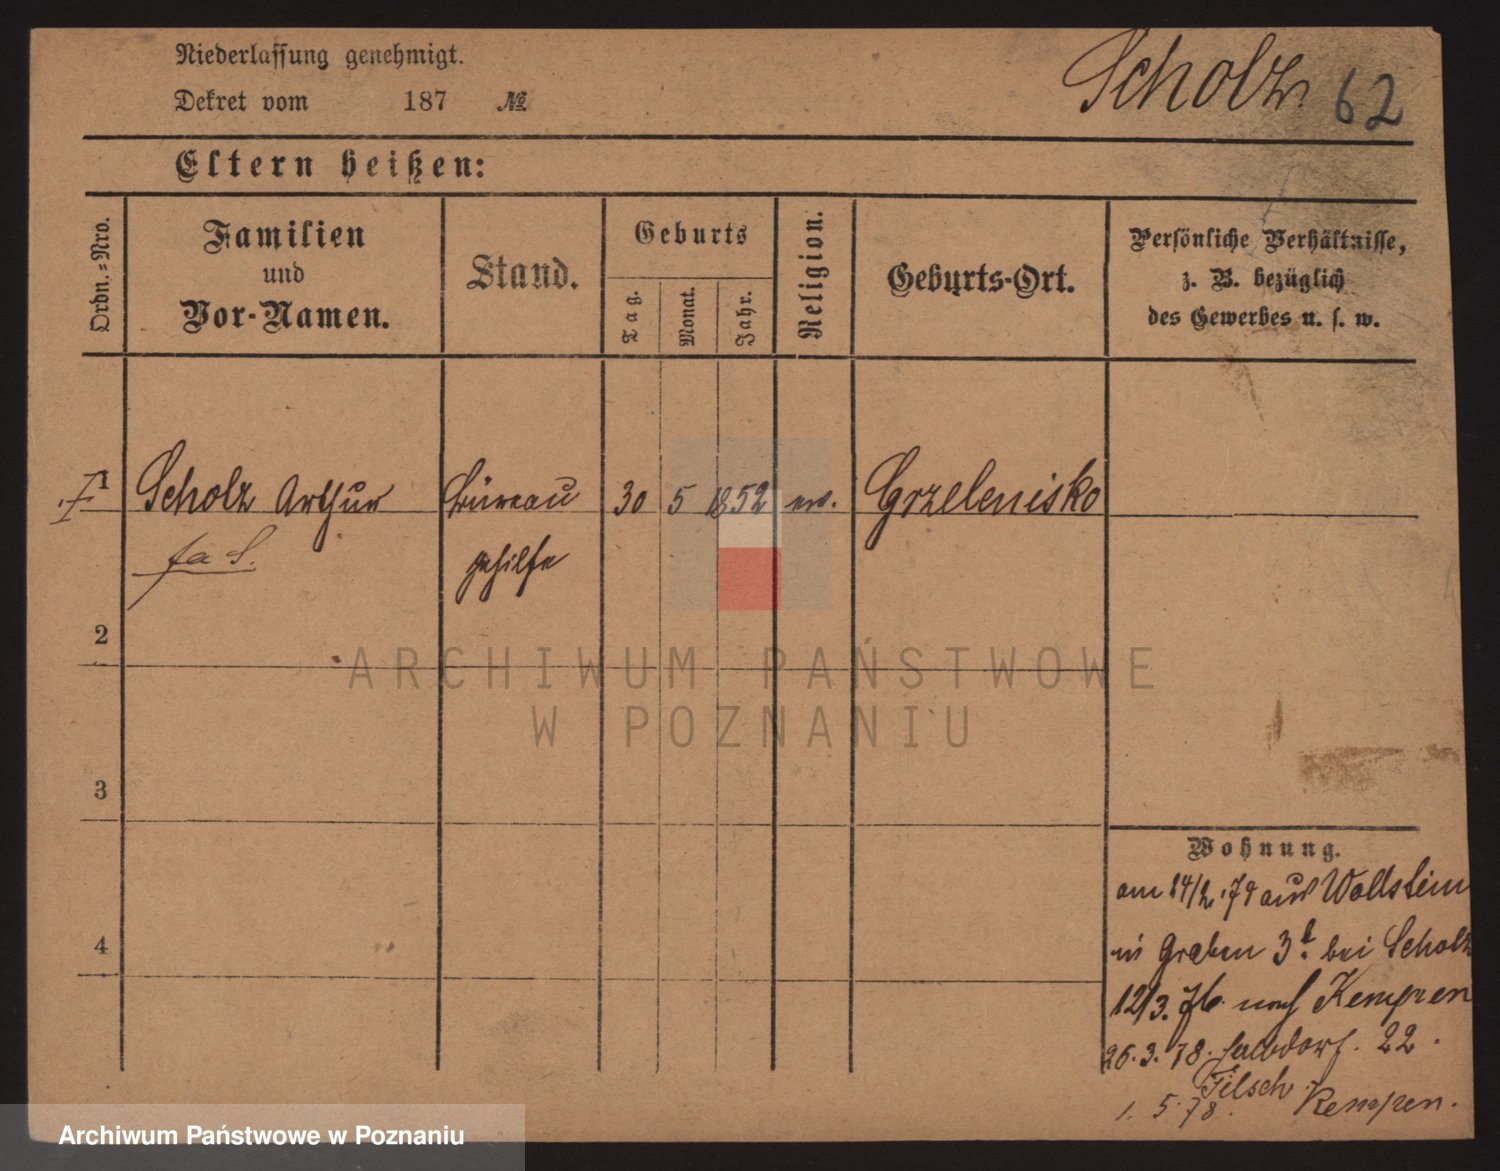 Niederlassung genehmigt.
Scholz 62
Dekret vom 187 №
Eltern heißen:
Ordn.=Nro.
Familien
und
Vor-Namen.
Stand.
Geburts
Tag.
Monat.
Jahr.
Religion.
Geburts-Ort.
Persönliche Verhältnisse,
z. B. bezüglich
des Gewerbes u. s. w.
1 Scholz Arthur Büreau 30 5 1852 ev. Grzelenisko
gehilfe
2
3
4
ARCHIWUM PAŃSTWOWE
W POZNANIU
Wohnung.
am 14/2. 74 aus Wollstein
in Graben 3 bei Scholz
12/3. 76. nach Kempen
26.3.78. 22.
1. 5. 78. Kempen.
Archiwum Państwowe w Poznaniu